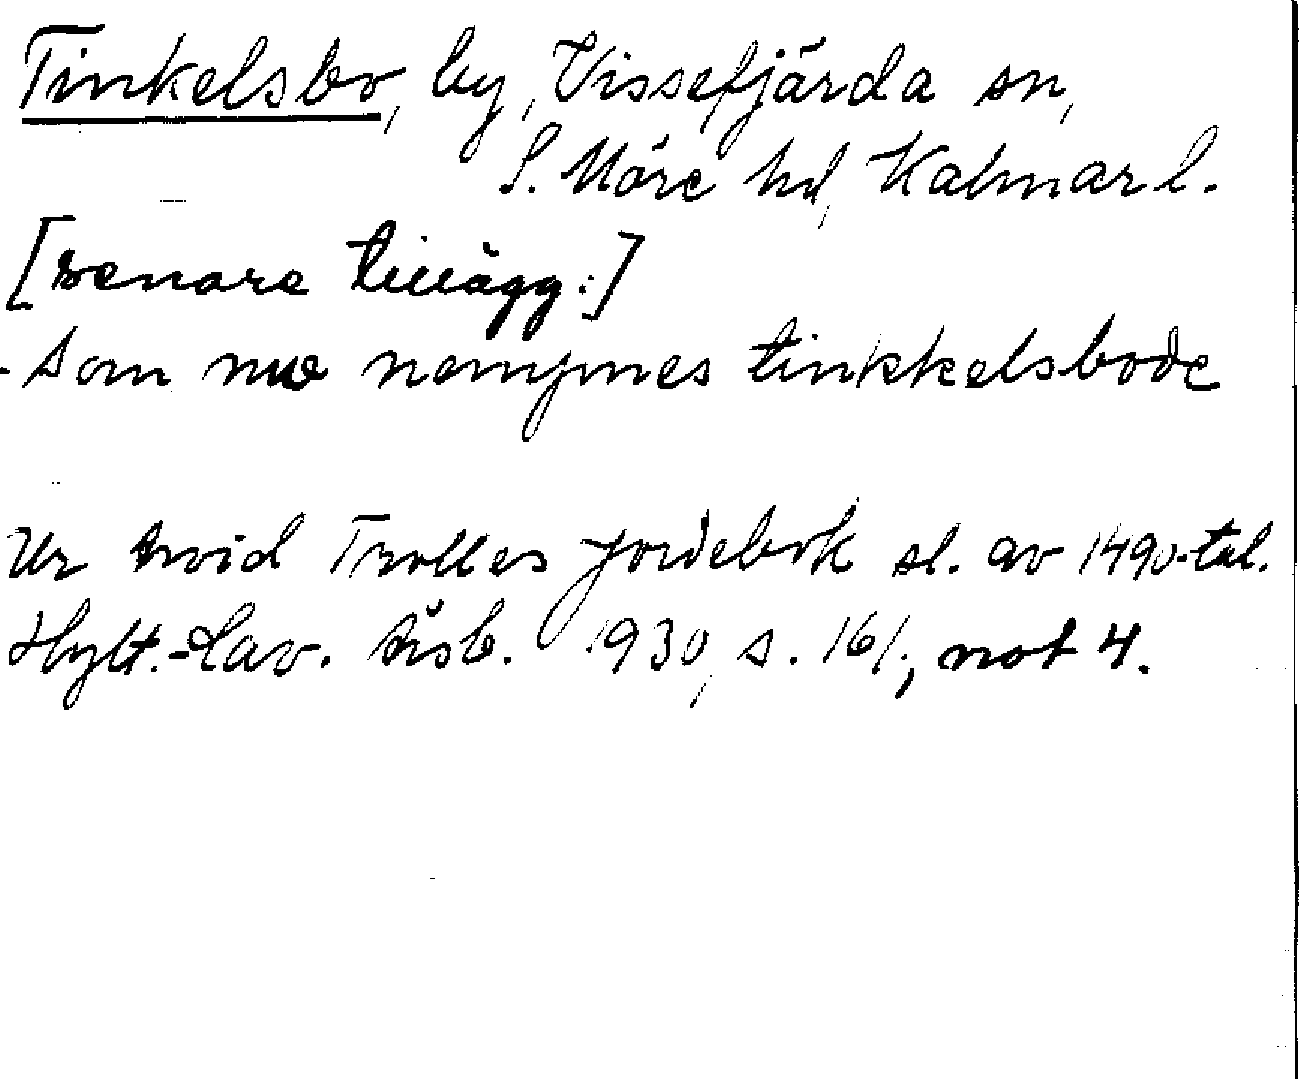 Tinkelsbo, by, Vissefjärda sn,
S. Möre hd, Kalmar l.
[senare tillägg:]
- som nw nempnes tinkkelsbode
Ur Arvid Trolles jordebok sl. av 1490-tal.
Hylt.-Cav. Årsb. 1930, s. 161, not 4.